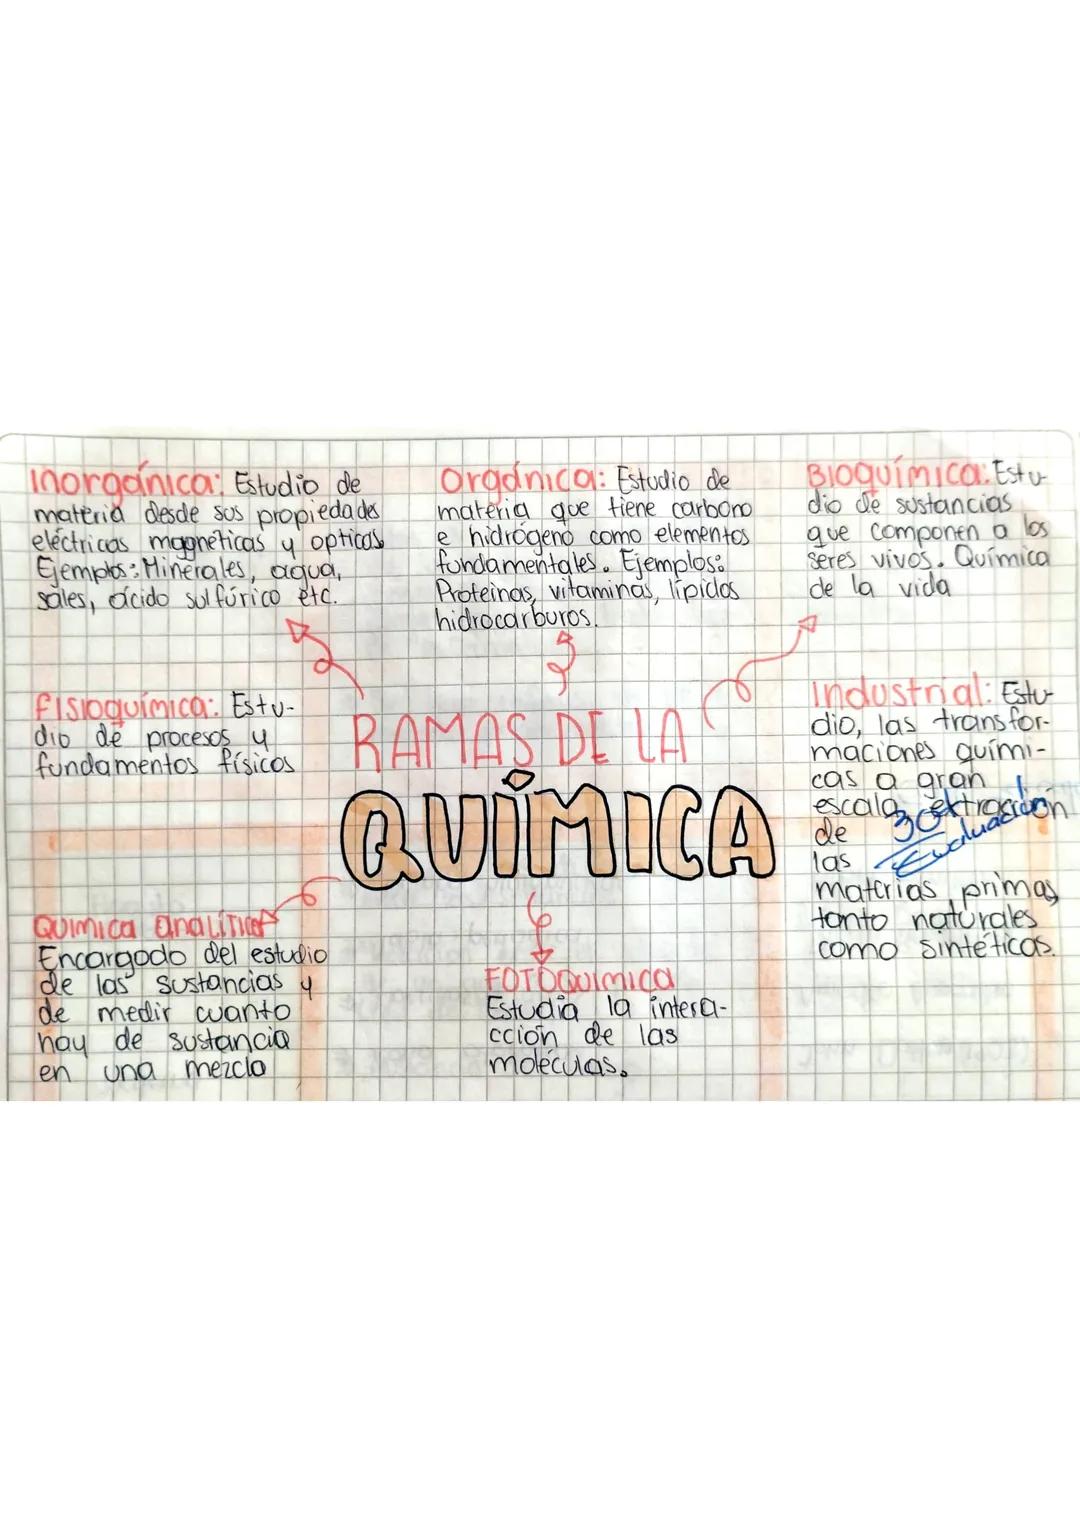 Inorgánica: Estudio de
materia desde sus propiedades
eléctricas magnéticas y opticas
Ejemplos: Minerales, agua,
sales, ácido sulfúrico etc.
Orgánica: Estudio de
materia que tiene carbono
e hidrógeno como elementos
fundamentales. Ejemplos:
Proteinas, vitaminas, lípidos
hidrocarburos.
BIOQUÍMICA: Estu-
dio de sustancias
que componen a los
seres vivos. Química
de la vida
fISIOQUÍMICA: Estu-
dio de procesos y
fundamentos físicos
RAMAS DE LA
QUÍMICA
Industrial: Estu-
dio, las transfor-
maciones quími-
cas a gran
escala extracción
de
las
materias primas
tanto naturales
como sintéticas.
Evaluación
QUIMICA ANALÍTICA
Encargado del estudio
de las sustancias y
de medir cuanto
hay de sustancia
en una mezcla
FOTOQUIMICA
Estudia la intera-
cción de las
moléculas.